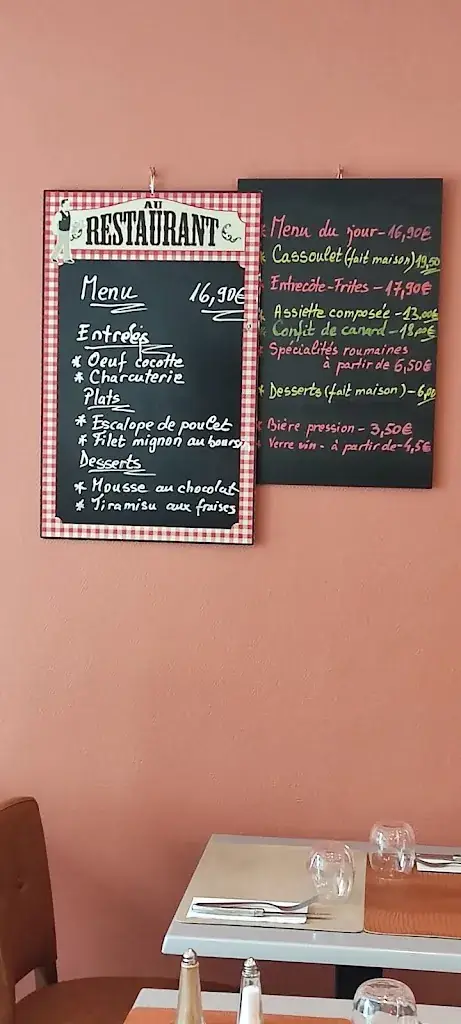 AU
RESTAURANT
Menu 16,90€
Entrées
* Oeuf cocotte
* Charcuterie
Plats
* Escalope de poulet
* Filet mignon au boursin
Desserts
* Mousse au chocolat
* Tiramisu aux fraises
* Menu du jour - 16,90€
* Cassoulet (fait maison) 19,50
* Entrecôte - Frites - 17,90€
* Assiette composée - 13,00€
* Confit de canard - 18,00€
* Spécialités roumaines
à partir de 6,50€
* Desserts (fait maison) - 6,00
* Bière pression - 3,50€
* Verre vin - à partir de - 4,5€